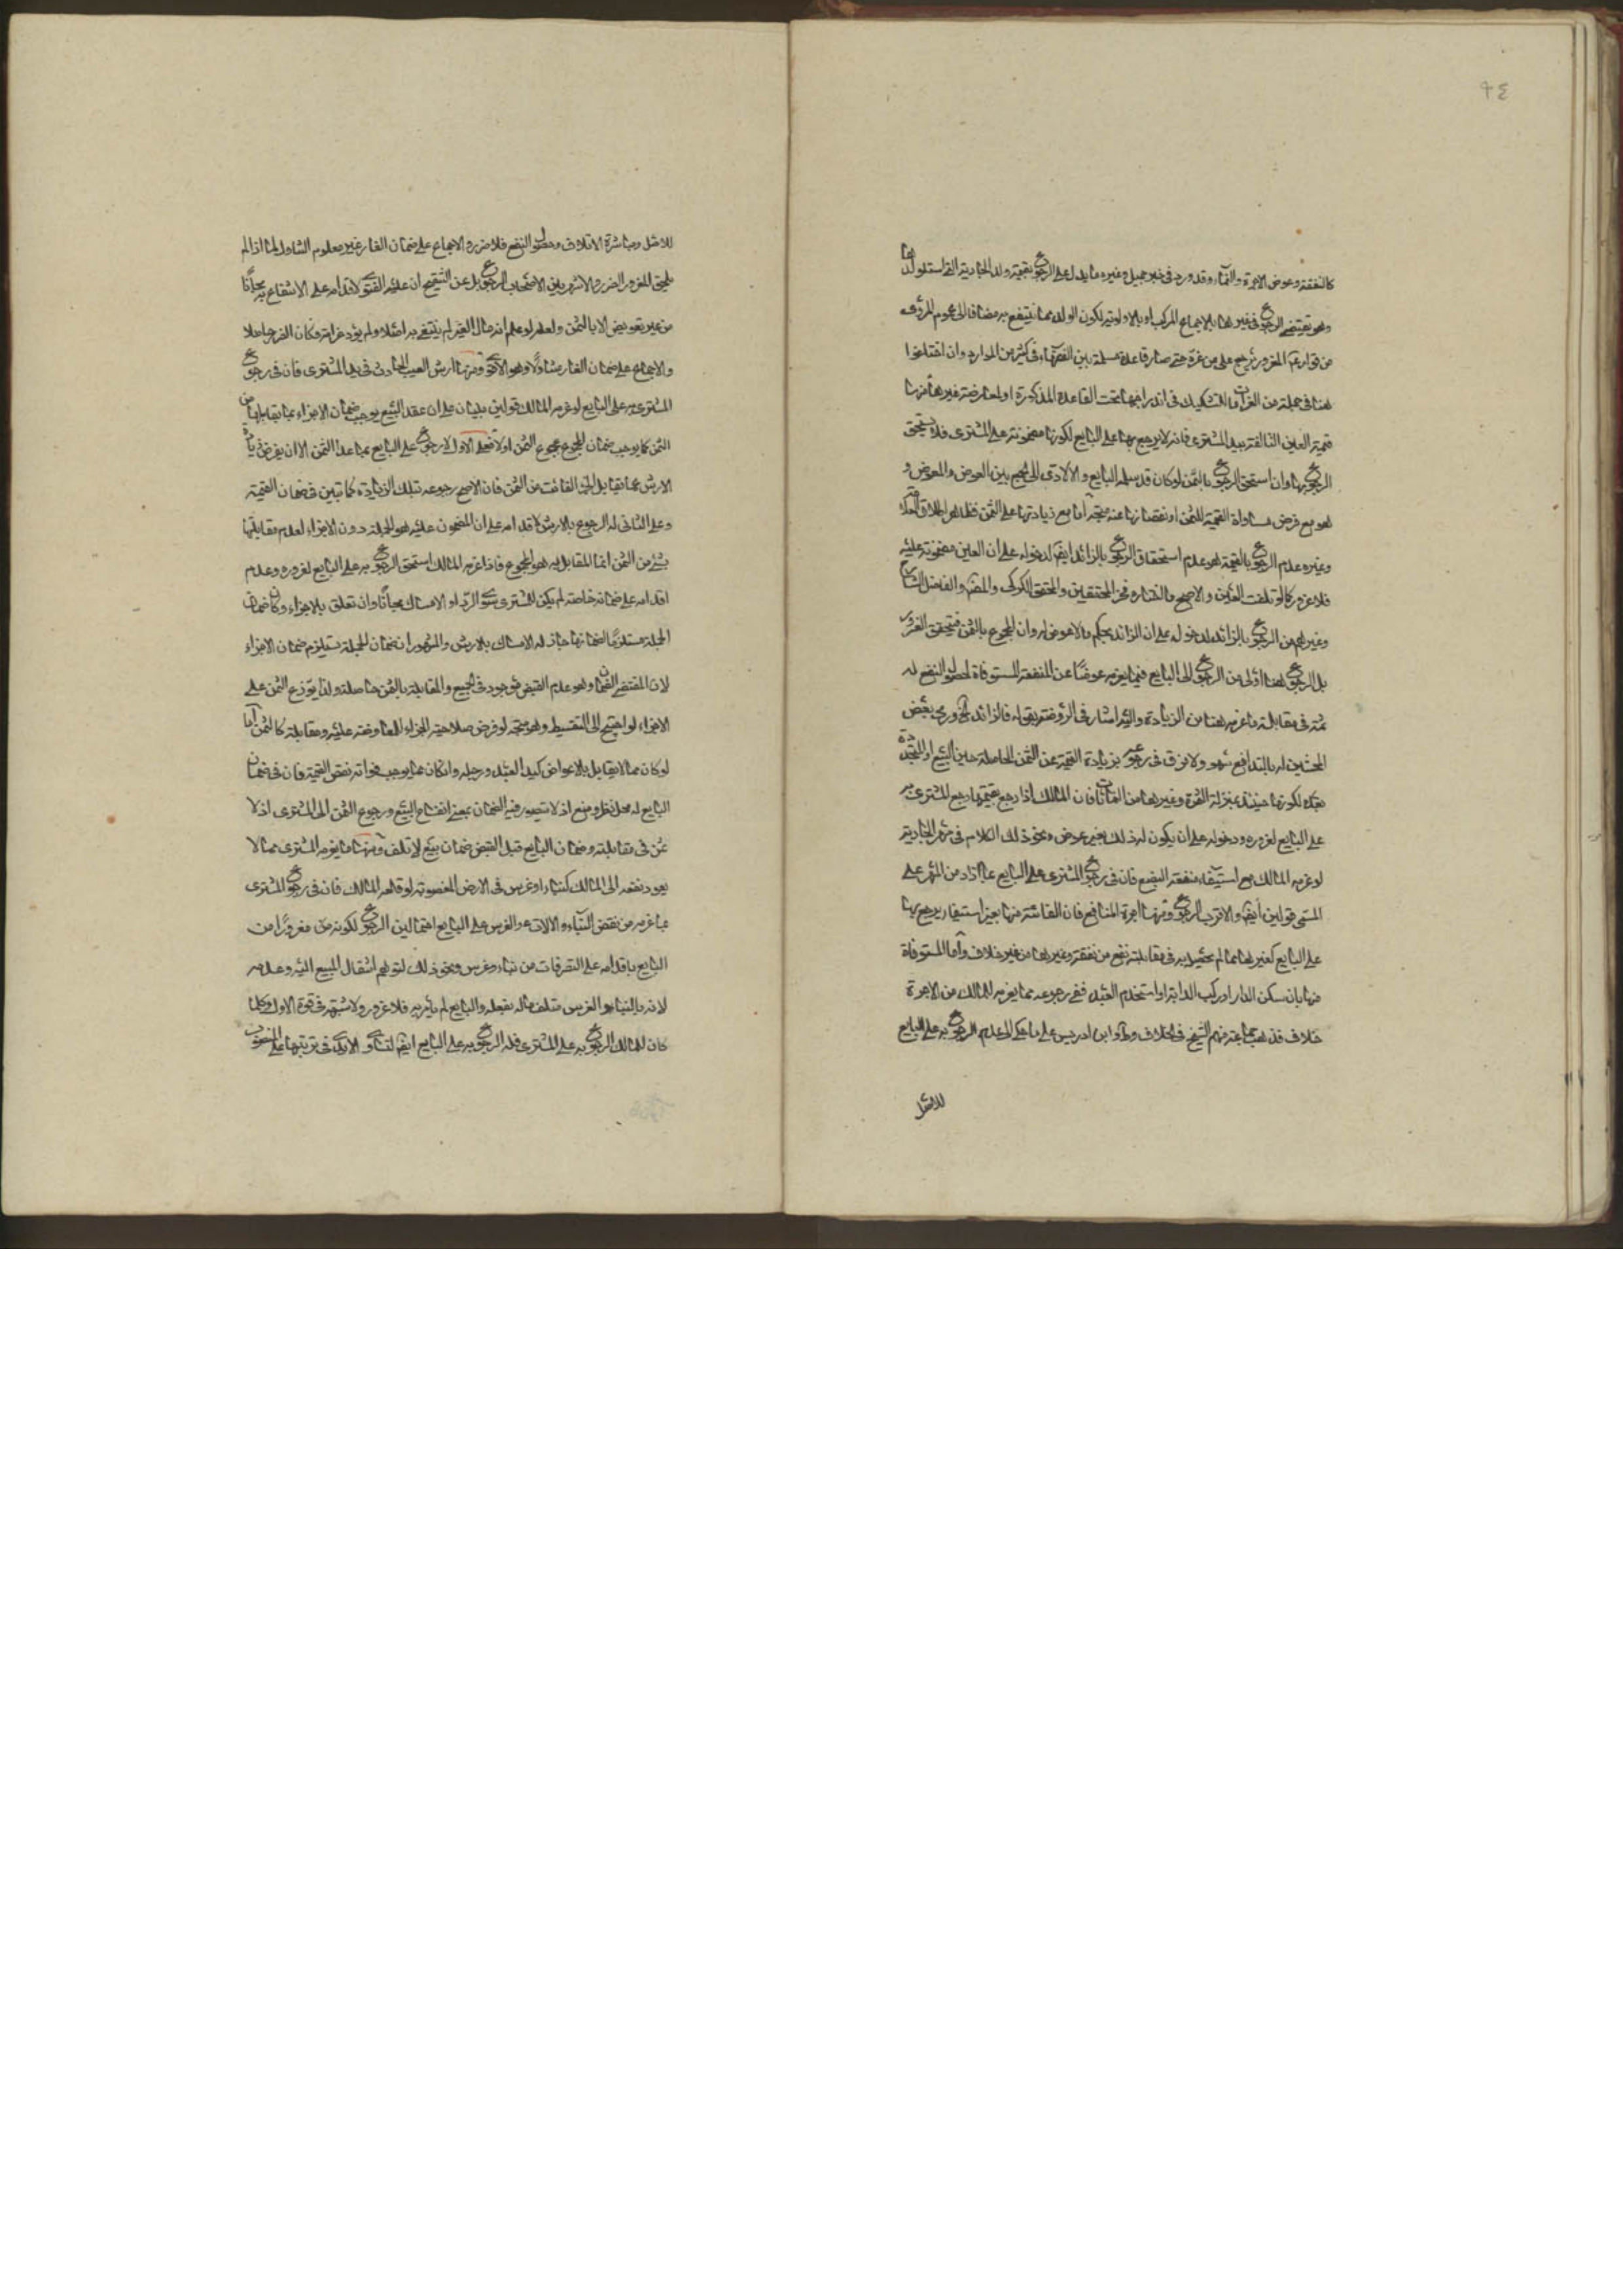 ٩٤
كالنفقة وعوض الاجرة والنماء وقد ورد فى خبر جميل وغيره ما يدل على الرجوع بقيمة ولد الجارية التى استولدها
وهو يقتضى الرجوع فى غيرها بالاجماع المركب او بالاولوية لكون الولد مما ينتفع به مضافا الى عموم المروى
من قوله ع المغرور يرجع على من غره حتى صار قاعدة مسلمة بين الفقهاء فى كثير من الموارد وان اختلفوا
هنا فى جملة من الغرامات للتشكيك فى اندراجها تحت القاعدة المذكورة او لمعارضة غيرها منها
قيمة العين التالفة بيد المشترى فانه لا يرجع بها على البايع لكونها مضمونة على المشترى فلا يستحق
الرجوع بها وان استحق الرجوع بالثمن لو كان قد سلمه البايع والا لادى الى الجمع بين العوض والمعوض و
هو مع فرض مساواة القيمة للثمن او نقصانها عنه متجه اما مع زيادتها على الثمن فظاهر اطلاق
وغيره عدم الرجوع بالقيمة هو عدم استحقاق الرجوع بالزائد ايضا لدخوله على ان العين مضمونة عليه
فلا غرور كما لو تلفت العين والاصح ما اختاره فخر المحققين والمحقق الكركى والفاضل
وغيرهم من الرجوع بالزائد لدخوله على ان الزائد بحكم ما لا عوض له وان المجموع بالثمن فيتحقق الغرور
بل الرجوع هنا اولى من الرجوع الى البايع فيما يغرمه عوضا عن المنفعة المستوفاة لحصول النفع له
ثمة فى مقابلة ما غرمه هنا من الزيادة واليه اشار فى الروضة بقوله فالزائد ورمى بعض
المحشين له بالتدافع سهو ولا فرق فى رجوعه بزيادة القيمة عن الثمن الحاصلة حين البيع او المتجددة
بعده لكونها حينئذ بمنزلة الثمرة وغيرها من النماءات فان المالك اذا رجع بقيمتها رجع المشترى به
على البايع لغروره ودخوله على ان يكون له ذلك بغير عوض ونحو ذلك الكلام فى مهر الجارية
لو غرمه المالك مع استيفاء منفعة البضع فان فى رجوع المشترى على البايع بما زاد من المهر على
المسمى قولين ايضا والاقرب الرجوع ومنها اجرة المنافع فان الفائتة منها بغير استيفاء يرجع بها
على البايع كغيرها مما لم يحصل به فى مقابلته نفع من نفقة وغيرها من غير خلاف واما المستوفاة
منها بان سكن الدار او ركب الدابة او استخدم العبد ففى رجوعه مما يغرمه للمالك من الاجرة
خلاف فذهب جماعة منهم الشيخ فى الخلاف وابن ادريس على ما حكى الى عدم الرجوع به على البايع
للاصل
للاصل ومباشرة الاتلاف وحصول النفع فلا ضرر والاجماع على ضمان الغار غير معلوم الشمول لما اذا لم
يلحق المغرور الضرر والاشهر بين الاصحاب الرجوع بل عن التنقيح ان عليه الفتوى لاقدامه على الانتفاع به مجانا
من غير تعويض الا بالثمن ولعله لو علم انه مال الغير لم ينتفع به اصلا ولم يؤد غرامة وكان الضرر حاصلا
والاجماع على ضمان الغار متناولا وهو الاقوى ومنها ارش العيب الحادث فى يد المشترى فان فى رجوع
المشترى به على البايع لو غرمه المالك قولين يبنيان على ان عقد البيع يوجب ضمان الاجزاء بما يقابلها من
الثمن كما يوجب ضمان المجموع بمجموع الثمن اولا فعلى الاول لا رجوع على البايع بما عدا الثمن الا ان يفرض زيادة
الارش عما يقابل الجزء الفائت من الثمن فان الاصح رجوعه بتلك الزيادة كما تبين فى ضمان القيمة
وعلى الثانى له الرجوع بالارش لاقدامه على ان المضمون عليه هو الجملة دون الاجزاء لعدم مقابلتها
بشئ من الثمن انما المقابل به هو المجموع فاذا غرمه المالك استحق الرجوع به على البايع لغروره وعدم
اقدامه على ضمانه خاصة لم يكن للمشترى سوى الرد او الامساك مجانا وان تعلق بالاجزاء وكان ضمان
الجملة مستلزما لضمانها جاز له الامساك بالارش والمشهور ان ضمان الجملة يستلزم ضمان الاجزاء
لان المقتضى للضمان وهو عدم القبض موجود فى الجميع والمقابلة بالثمن حاصلة ولذا يوزع الثمن على
الاجزاء لو احتيج الى التقسيط وهو متجه لو فرض صلاحية الجزء للمعاوضة عليه ومقابلته كالثمن اما
لو كان مما لا يقابل بالاعواض كيد العبد ورجله وان كان مما يوجب فواته نقص القيمة فان فى ضمان
البايع له محل نظر ومنع اذ لا يتصور فيه الضمان بمعنى انفساخ البيع ورجوع الثمن الى المشترى اذ لا
ثمن فى مقابلته وضمان البايع قبل القبض ضمان بيع لا تلف ومنها ما يغرمه المشترى مما لا
يعود نفعه الى المالك كبناء او غرس فى الارض المغصوبة لو قلعه المالك فان فى رجوع المشترى
بما غرمه من نقص البناء والالات والغرس على البايع احتمالين الرجوع لكونه مغرورا من
البايع باقدامه على التصرفات من بناء وغرس ونحو ذلك لتوهم انتقال المبيع اليه وعدمه
لانه بالبناء او الغرس متلف ماله بفعله والبايع لم يأمر به فلا غرور ولا شبهة فى قوة الاول وكلما
كان للمالك الرجوع به على المشترى فله الرجوع به على البايع ايضا لتساوى الايدى فى ترتبها على المغصوب